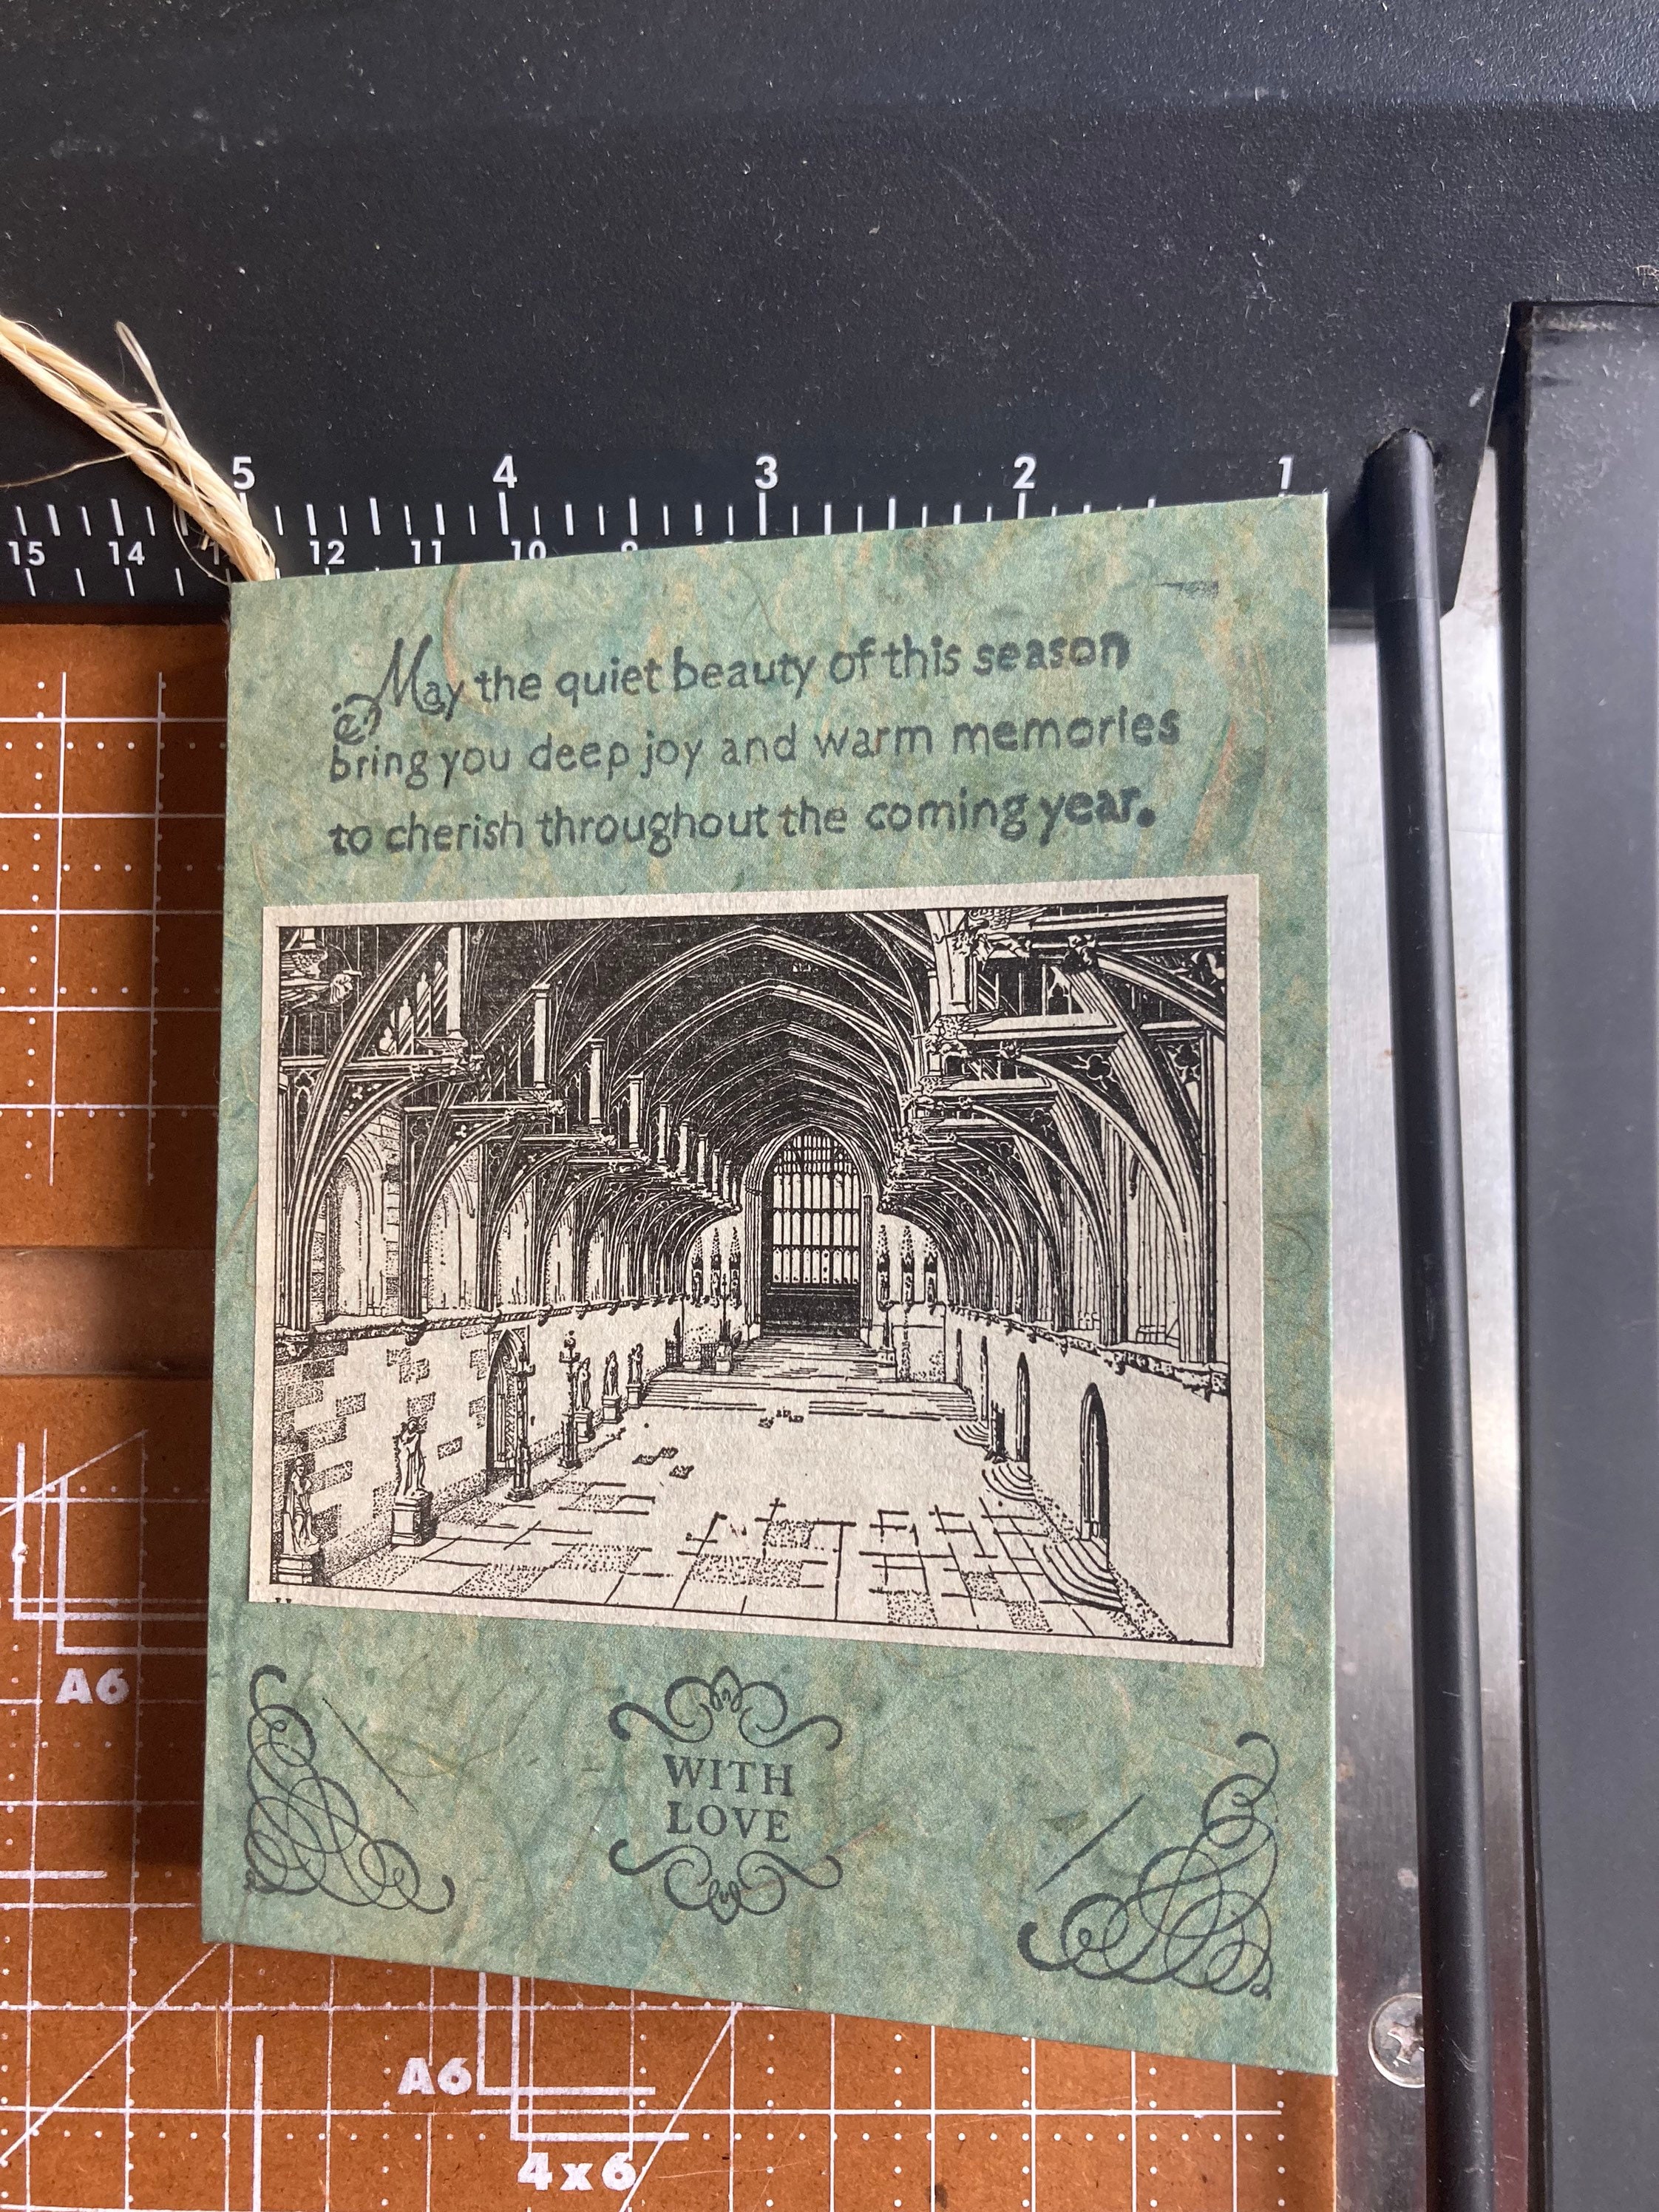 5 4 3 2 1
15 14 12 11 10
May the quiet beauty of this season
bring you deep joy and warm memories
to cherish throughout the coming year.
WITH
LOVE
A6
A6
4x6